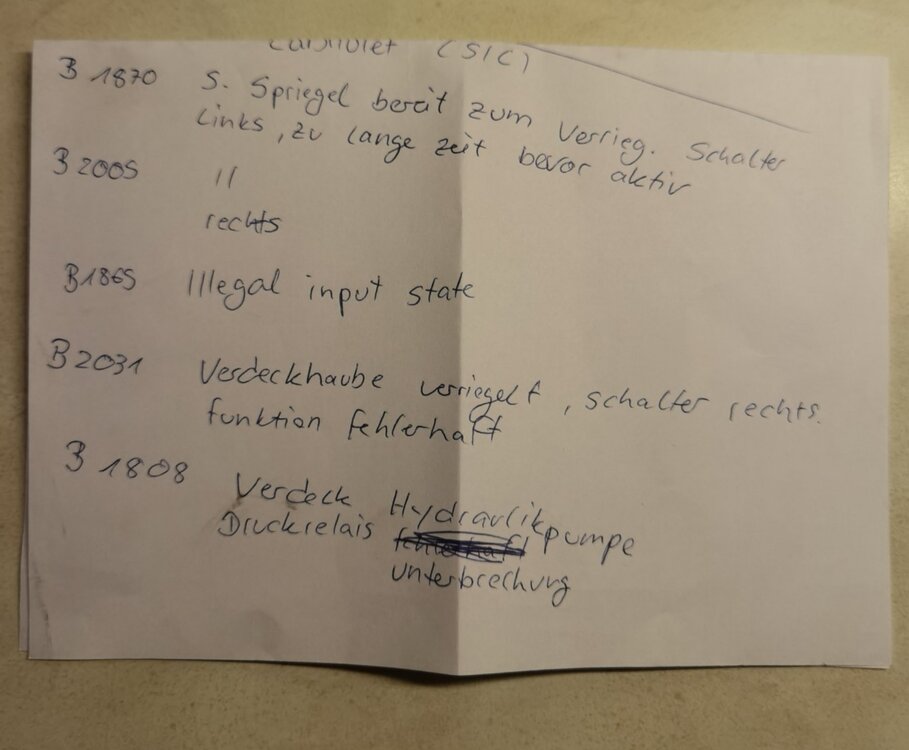 Cabriolet (SIC)
B 1870 S. Spriegel bereit zum Verrieg. Schalter
Links, zu lange zeit bevor aktiv
B 2005 //
rechts
B1865 Illegal input state
B2031 Verdeckhaube verriegelt, schalter rechts.
funktion fehlerhaft
B 1808 Verdeck Hydraulikpumpe
Druckrelais
unterbrechung